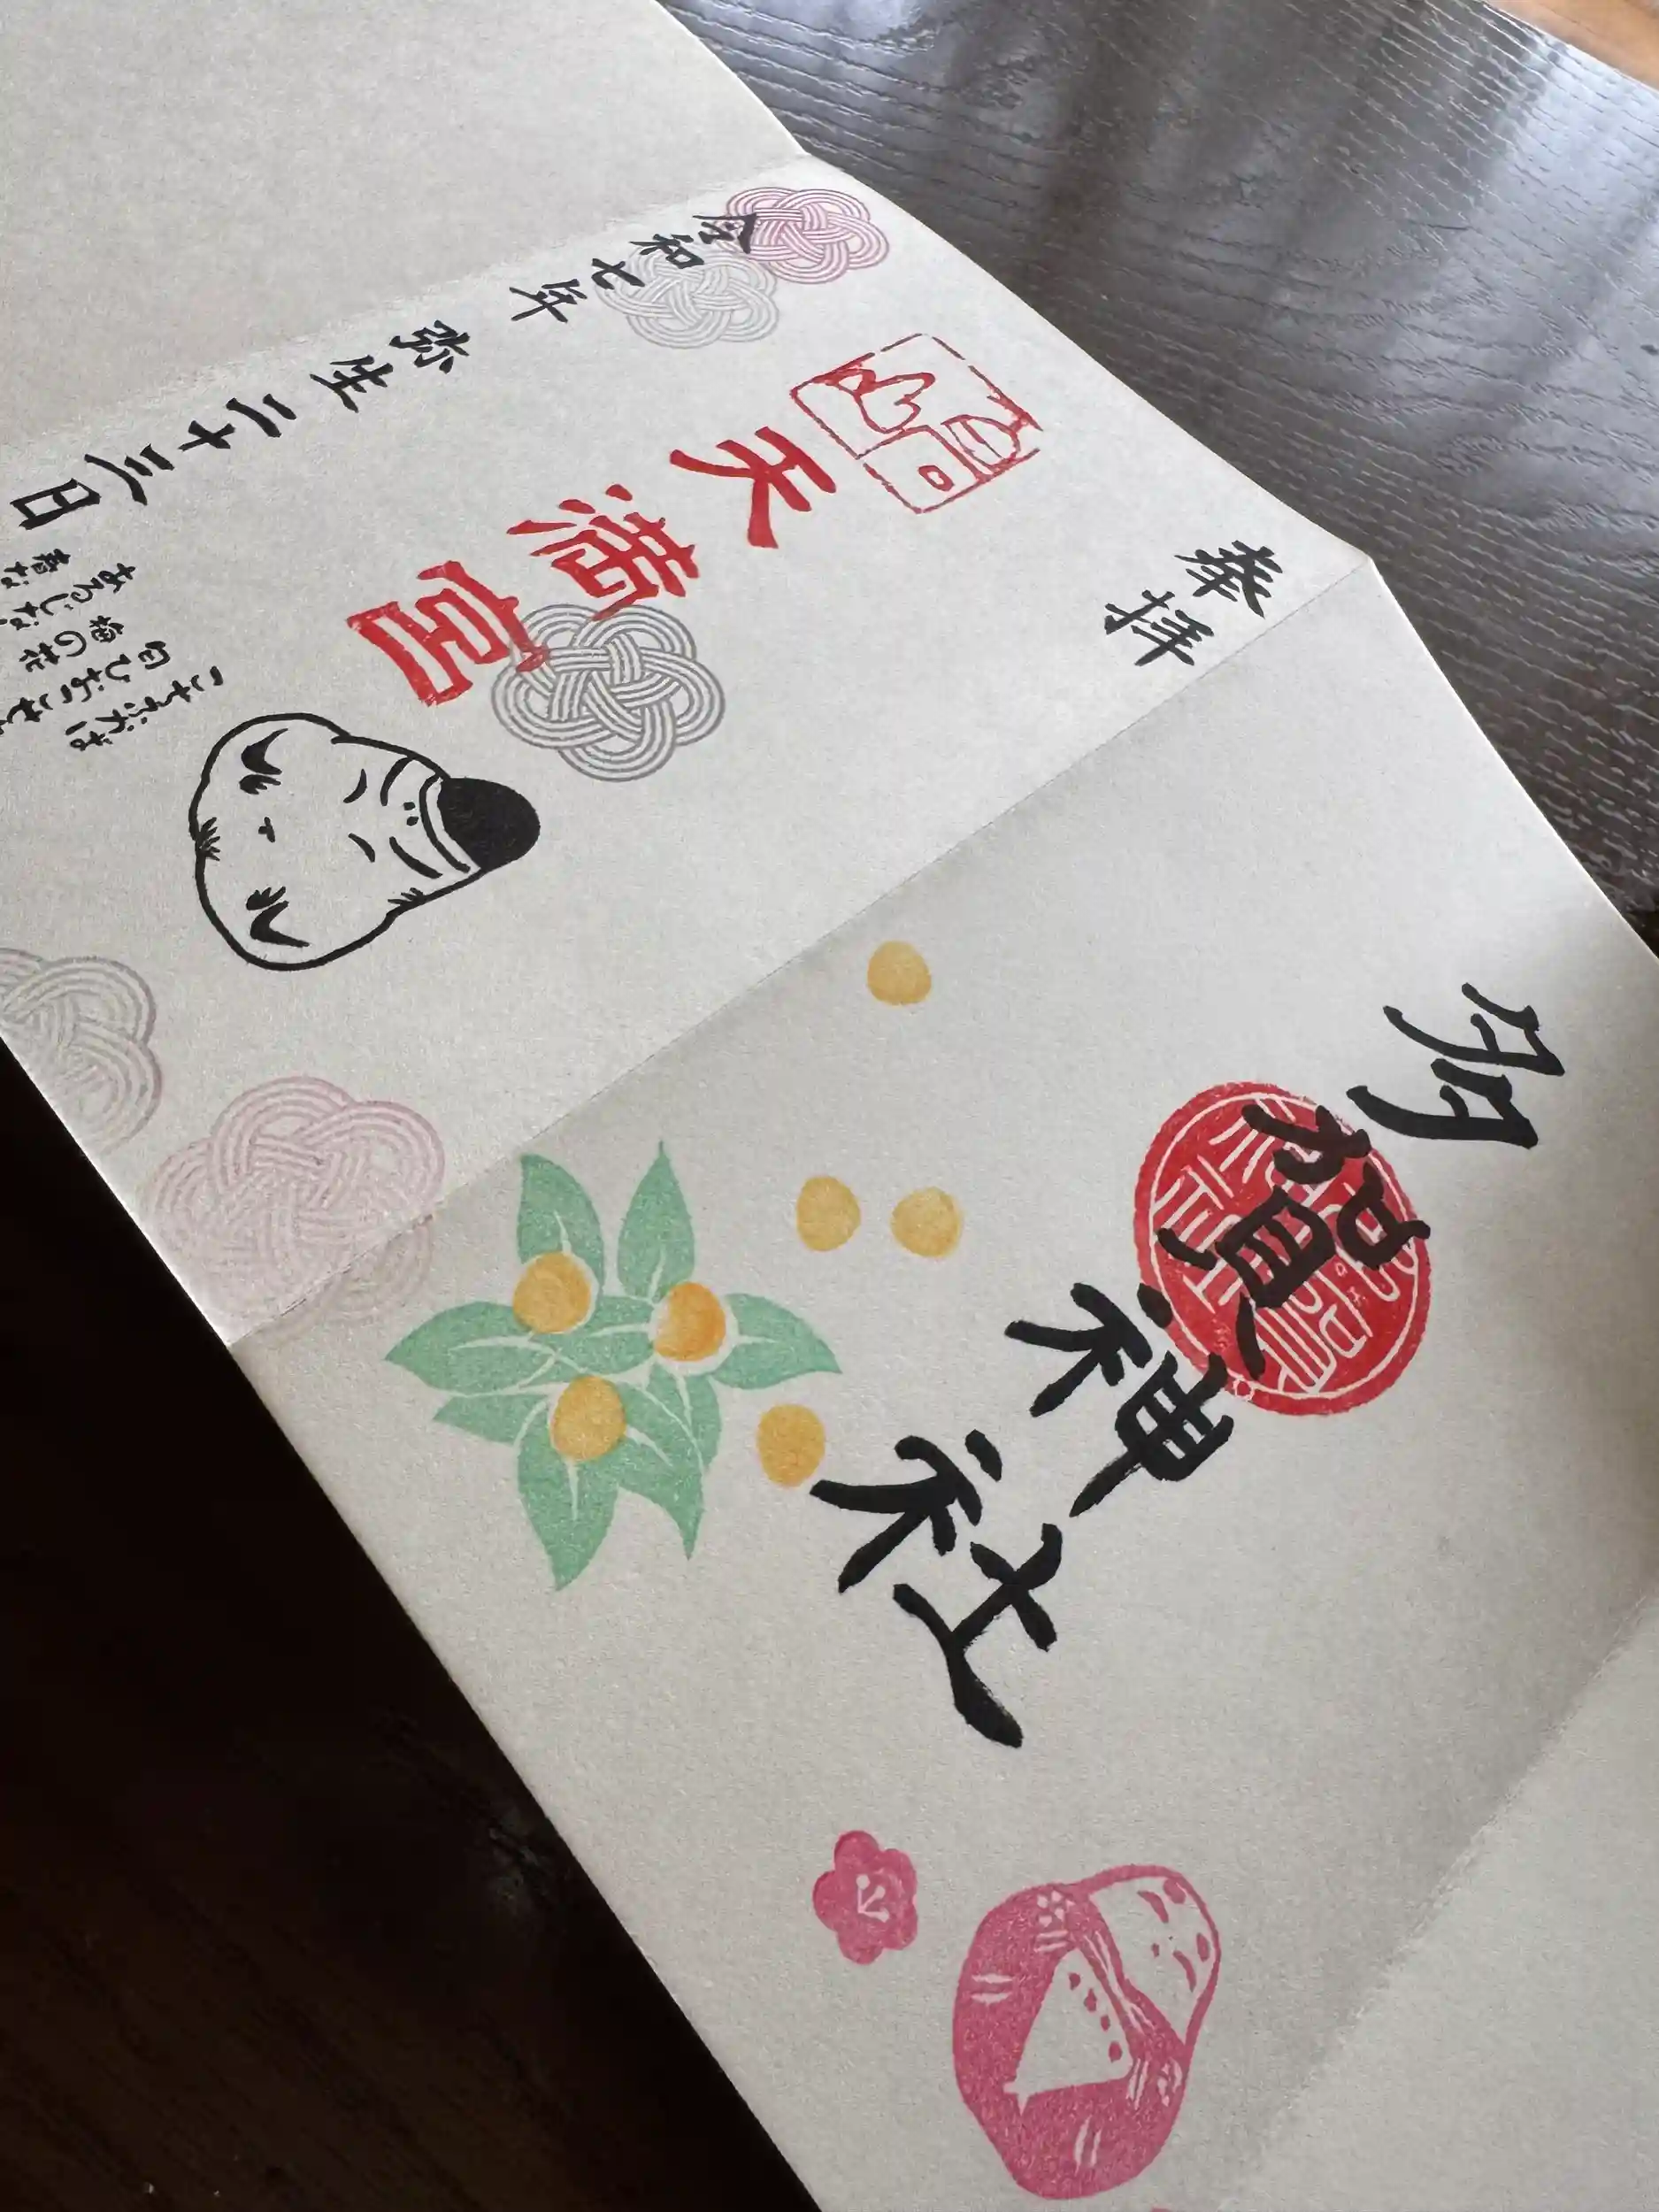 奉拝
天満宮
令和七年 弥生二十三日
こちふかば
匂ひおこせよ
梅の花
あるじな
春な
多賀神社